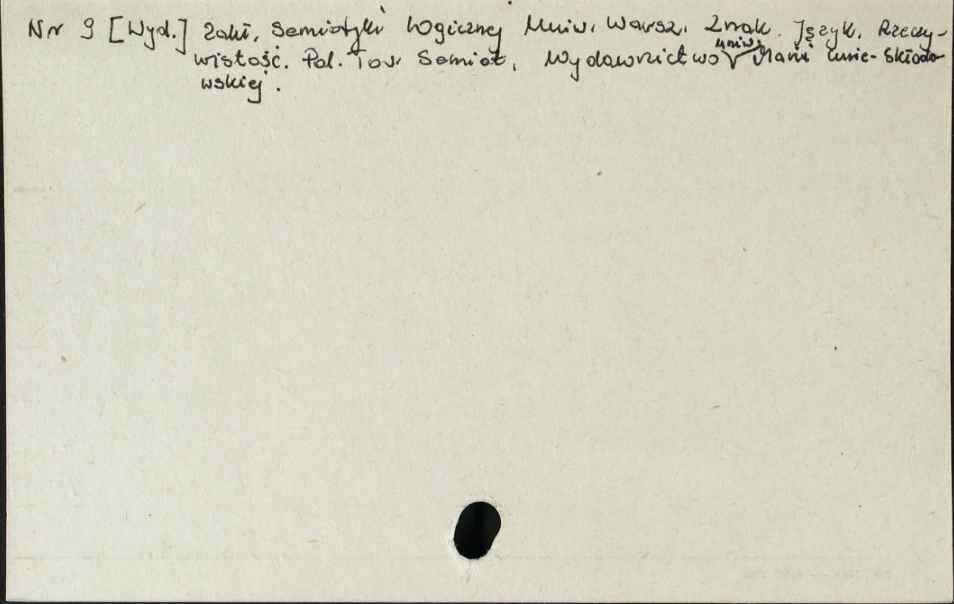 Nr 9 [Wyd.] Zakł. Semiotyki Logicznej Uniw. Warsz. Znak. Język. Rzeczy-
wistość. Pol. Tow. Semiot., Wydawnictwo Uniw. Marii Curie-Skłodo-
wskiej.